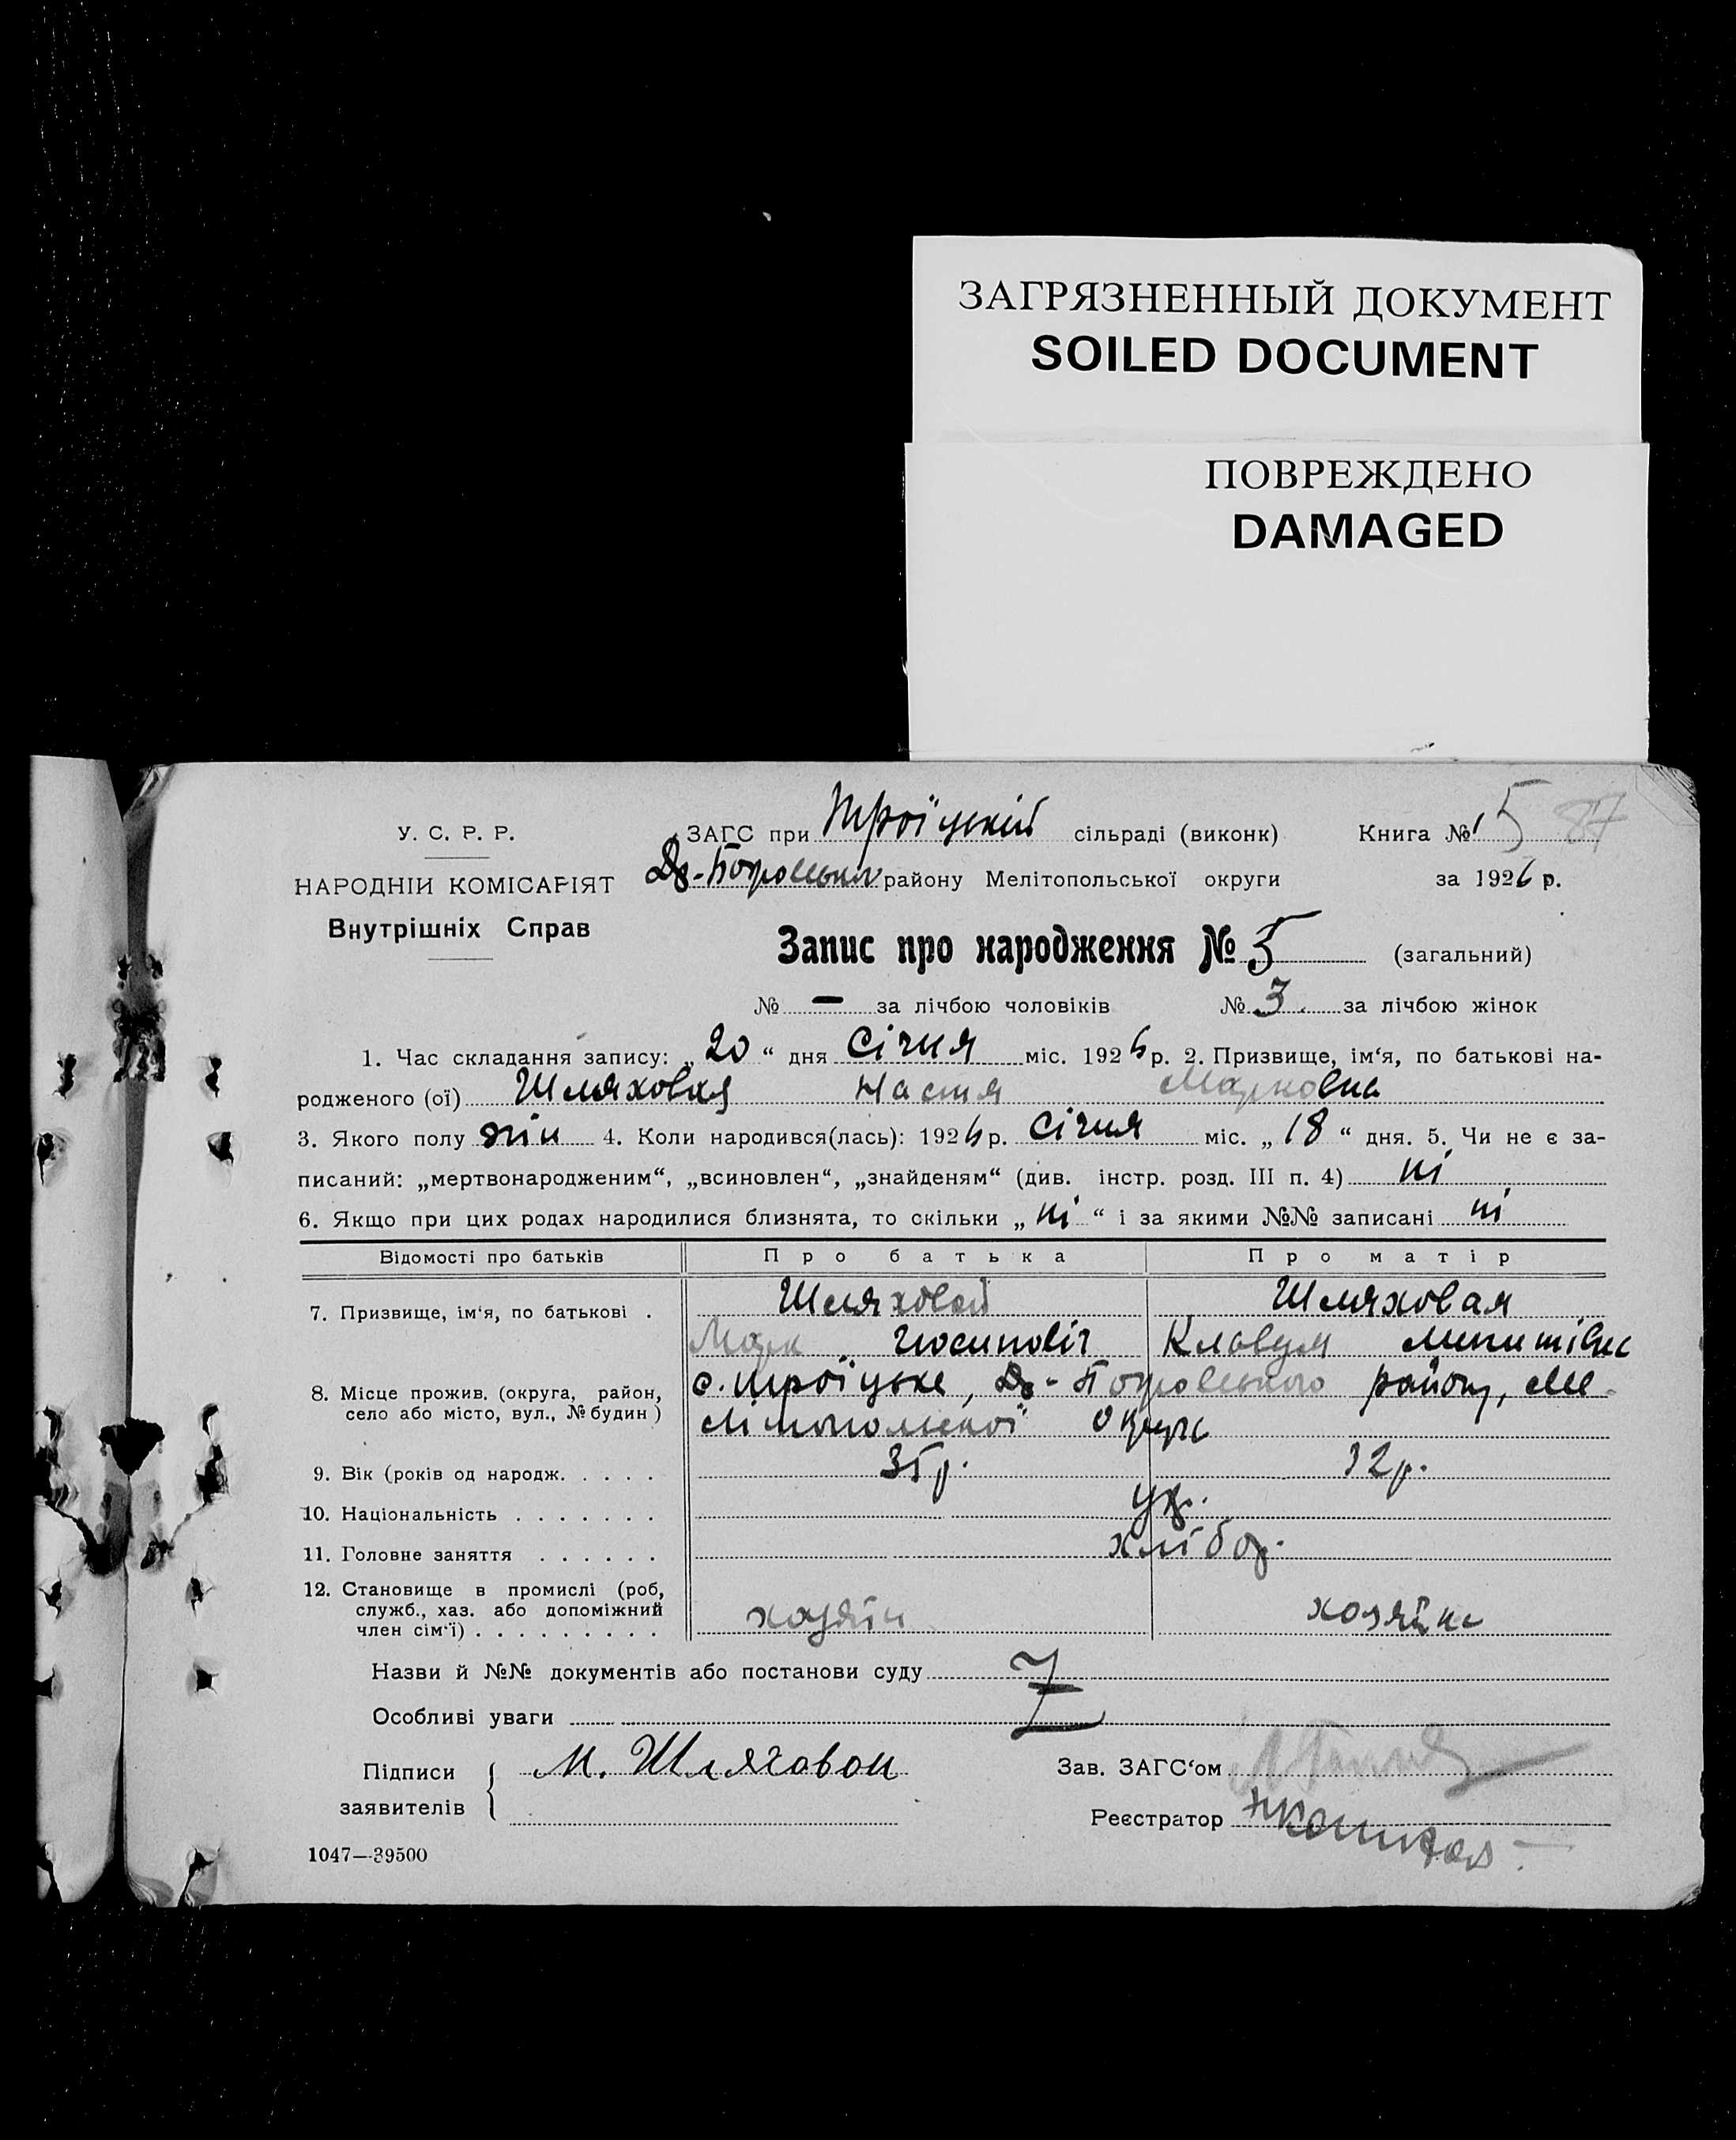 ЗАГРЯЗНЕННЫЙ ДОКУМЕНТ
SOILED DOCUMENT
ПОВРЕЖДЕНО
DAMAGED
У. С. Р. Р.
НАРОДНІЙ КОМІСАРІЯТ
Внутрішніх Справ
ЗАГС при Троїцькій сільраді (виконк) Книга № 5 87
району Мелітопольської округи за 1926 р.
Запис про народження № 5 (загальний)
№ — за лічбою чоловіків № 3 за лічбою жінок
1. Час складання запису: „20“ дня Січня міс. 1926 р. 2. Призвище, ім‘я, по батькові на-
родженого (ої) Шляховая Настя Марковна
3. Якого полу жін 4. Коли народився(лась): 1926 р. Січня міс. „18“ дня. 5. Чи не є за-
писаний: „мертвонародженим“, „всиновлен“, „знайденям“ (див. інстр. розд. III п. 4) ні
6. Якщо при цих родах народилися близнята, то скільки „ні“ і за якими №№ записані ні
Відомості про батьків Про батька Про матір
7. Призвище, ім‘я, по батькові . Шляховой Шляховая
Марк Микитівна
8. Місце прожив. (округа, район, село або місто, вул., № будин) с. Троїцьке, району, Ме-
літопольської Округи
9. Вік (років од народж. . . . . 35 р. 32 р.
10. Національність . . . . . . . ук.
11. Головне заняття . . . . . . хлібор.
12. Становище в промислі (роб, служб., хаз. або допоміжний член сім‘ї) . . . . . . . . . хозяїн хозяйка
Назви й №№ документів або постанови суду
Особливі уваги
Підписи заявителів М. Шляховой
Зав. ЗАГС‘ом
Реєстратор
1047—39500